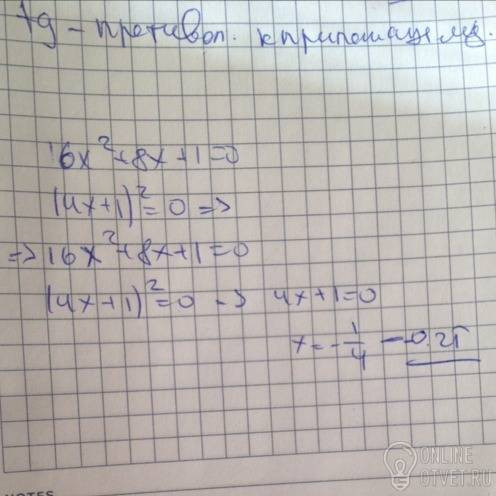 tg – противоп. к прилежащему.
16x²+8x+1=0
(4x+1)²=0 =>
=> 16x²+8x+1=0
(4x+1)²=0 -> 4x+1=0
x=-1/4 -0,25
ONLINE
OTVET.RU
NOTES